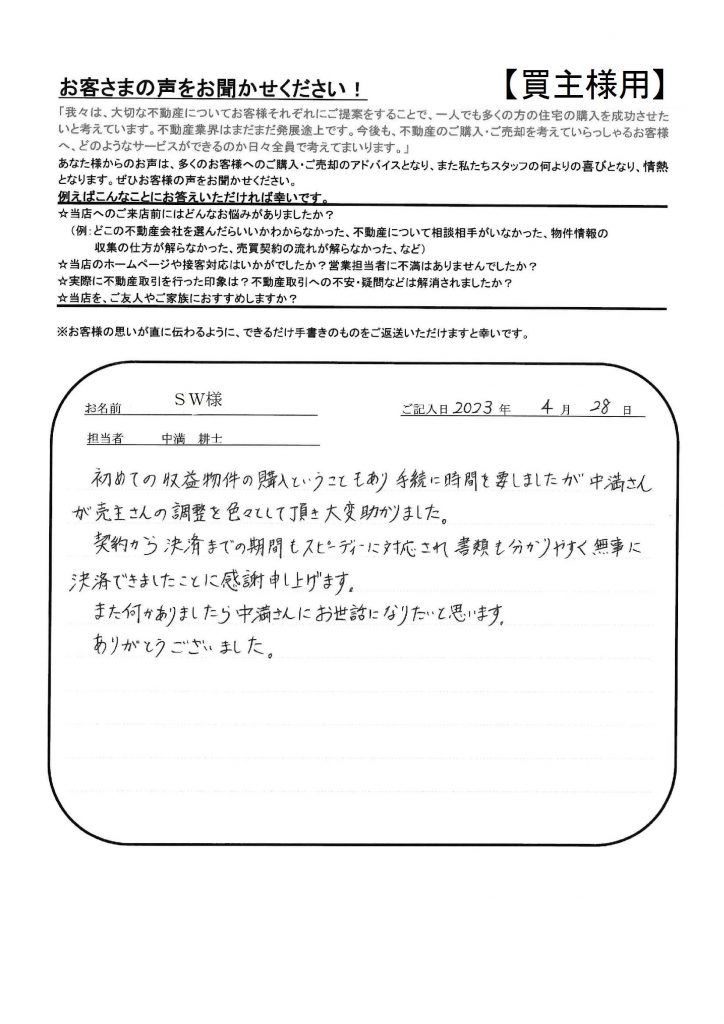 お客さまの声をお聞かせください！
【買主様用】
「我々は、大切な不動産についてお客様それぞれにご提案をすることで、一人でも多くの方の住宅の購入を成功させた
いと考えています。不動産業界はまだまだ発展途上です。今後も、不動産のご購入・ご売却を考えていらっしゃるお客様
へ、どのようなサービスができるのか日々全員で考えてまいります。」
あなた様からのお声は、多くのお客様へのご購入・ご売却のアドバイスとなり、また私たちスタッフの何よりの喜びとなり、情熱
となります。ぜひお客様の声をお聞かせください。
例えばこんなことにお答えいただければ幸いです。
☆当店へのご来店前にはどんなお悩みがありましたか？
（例：どこの不動産会社を選んだらいいかわからなかった、不動産について相談相手がいなかった、物件情報の
収集の仕方が解らなかった、売買契約の流れが解らなかった、など）
☆当店のホームページや接客対応はいかがでしたか？営業担当者に不満はありませんでしたか？
☆実際に不動産取引を行った印象は？不動産取引への不安・疑問などは解消されましたか？
☆当店を、ご友人やご家族におすすめしますか？
※お客様の思いが直に伝わるように、できるだけ手書きのものをご返送いただけますと幸いです。
お名前 SW様 ご記入日 2023 年 4 月 28 日
担当者 中満 耕士
初めての収益物件の購入ということもあり手続に時間を要しましたが中満さん
が売主さんの調整を色々として頂き大変助かりました。
契約から決済までの期間もスピーディーに対応され書類も分かりやすく無事に
決済できましたことに感謝申し上げます。
また何かありましたら中満さんにお世話になりたいと思います。
ありがとうございました。